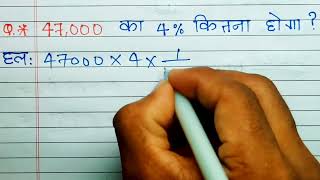 Q.* 47,000 का 4% कितना होगा ?
हल: 47000 × 4 × 1